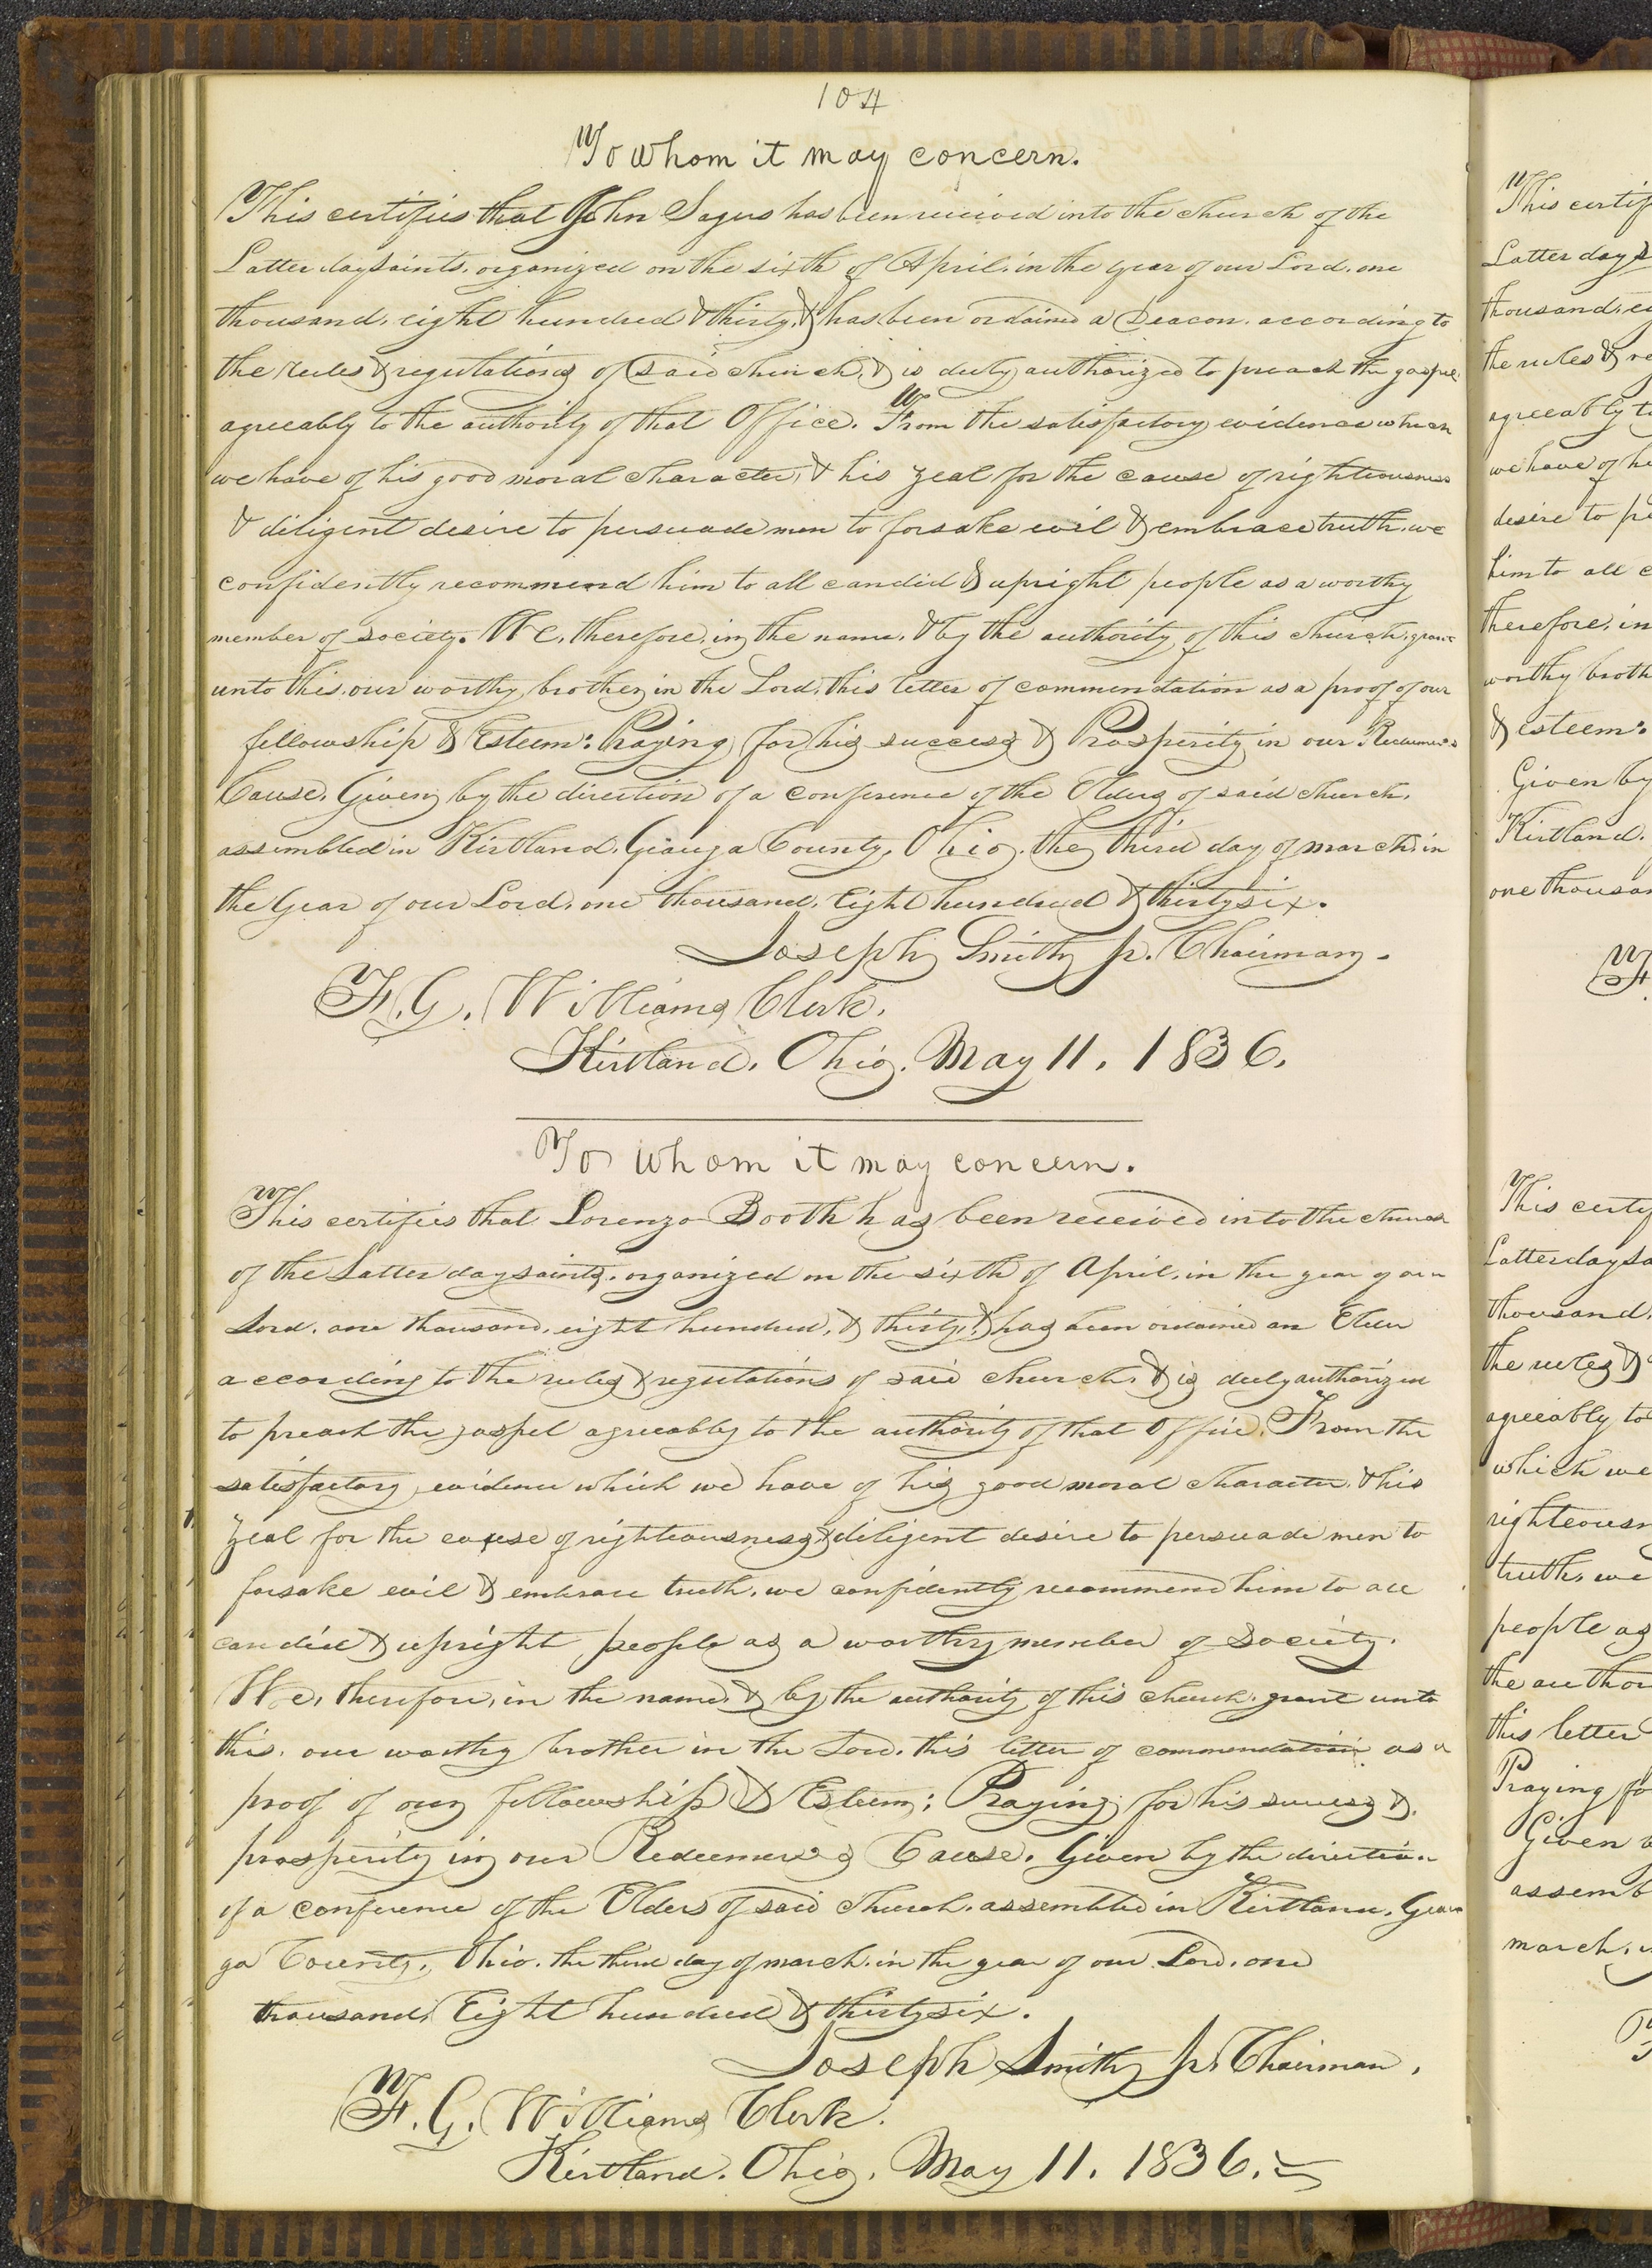 104
To whom it may concern.
This certifies that John Sagers has been received into the church of the
Latter day saints, organized on the sixth of April, in the year of our Lord, one
thousand, eight hundred & thirty, & has been ordained a Deacon, according to
the rules & regulations of said church, & is duly authorized to preach the gospel
agreeably to the authority of that Office. From the satisfactory evidence which
we have of his good moral character, & his zeal for the cause of righteousness
& diligent desire to persuade men to forsake evil & embrace truth, we
confidently recommend him to all candid & upright people as a worthy
member of society. We, therefore, in the name, & by the authority of this church, grant
unto this, our worthy brother in the Lord, this letter of commendation as a proof of our
fellowship & Esteem: Praying for his success & Prosperity in our Redeemer's
Cause. Given by the direction of a conference of the Elders of said church,
assembled in Kirtland, Geauga County, Ohio, the third day of march, in
the year of our Lord, one thousand, Eight hundred & thirty six.
Joseph Smith jr. Chairman.
F. G. Williams Clerk.
Kirtland, Ohio, May 11, 1836.
To whom it may concern.
This certifies that Lorenzo Booth has been received into the church
of the Latter day saints, organized on the sixth of April, in the year of our
Lord, one thousand, eight hundred, & thirty, & has been ordained an Elder
according to the rules & regulations of said church, & is duly authorized
to preach the gospel agreeably to the authority of that Office. From the
satisfactory evidence which we have of his good moral character, & his
zeal for the cause of righteousness, & diligent desire to persuade men to
forsake evil & embrace truth, we confidently recommend him to all
candid & upright people as a worthy member of society.
We, therefore, in the name, & by the authority of this church, grant unto
this, our worthy brother in the Lord, this letter of commendation as a
proof of our fellowship & Esteem; Praying for his success &
prosperity in our Redeemer's Cause. Given by the direction
of a conference of the Elders of said church, assembled in Kirtland, Geau
ga County, Ohio, the third day of march, in the year of our Lord, one
thousand, Eight hundred & thirty six.
Joseph Smith jr. Chairman.
F. G. Williams Clerk.
Kirtland, Ohio, May 11, 1836.
This
Latter day
thousand,
the rules &
agreeably
we have of
desire to
him to all
therefore, in
worthy
& esteem:
Given by
Kirtland,
one
This
Latter day
thousand,
the rules &
agreeably to
which we
truth, we
people as
the
this letter
Praying
Given
march,